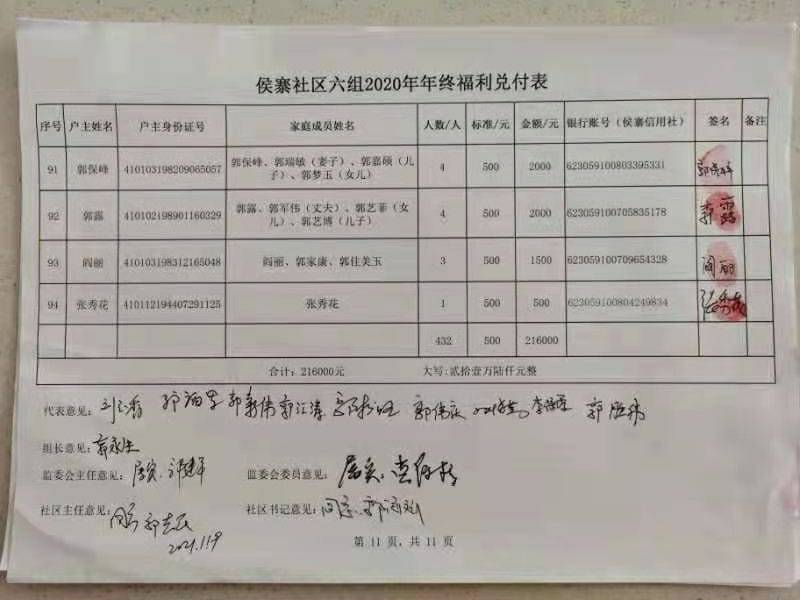 侯寨社区六组2020年年终福利兑付表
序号 户主姓名 户主身份证号 家庭成员姓名 人数/人 标准/元 金额/元 银行账号（侯寨信用社） 签名 备注
91 郭保峰 410103198209065057 郭保峰、郭瑞敏（妻子）、郭嘉硕（儿子）、郭梦玉（女儿） 4 500 2000 623059100803395331
92 郭露 410102198901160329 郭露、郭军伟（丈夫）、郭艺菲（女儿）、郭艺博（儿子） 4 500 2000 623059100705835178 郭露
93 阎丽 410103198312165048 阎丽、郭家康、郭佳美玉 3 500 1500 623059100709654328 阎丽
94 张秀花 410112194407291125 张秀花 1 500 500 623059100804249834 张秀花
432 500 216000
合计：216000元 大写：贰拾壹万陆仟元整
代表意见：
组长意见：
监委会主任意见： 属实
监委会委员意见： 属实
社区主任意见： 同意
社区书记意见： 同意
2021.1.19
第 11 页，共 11 页